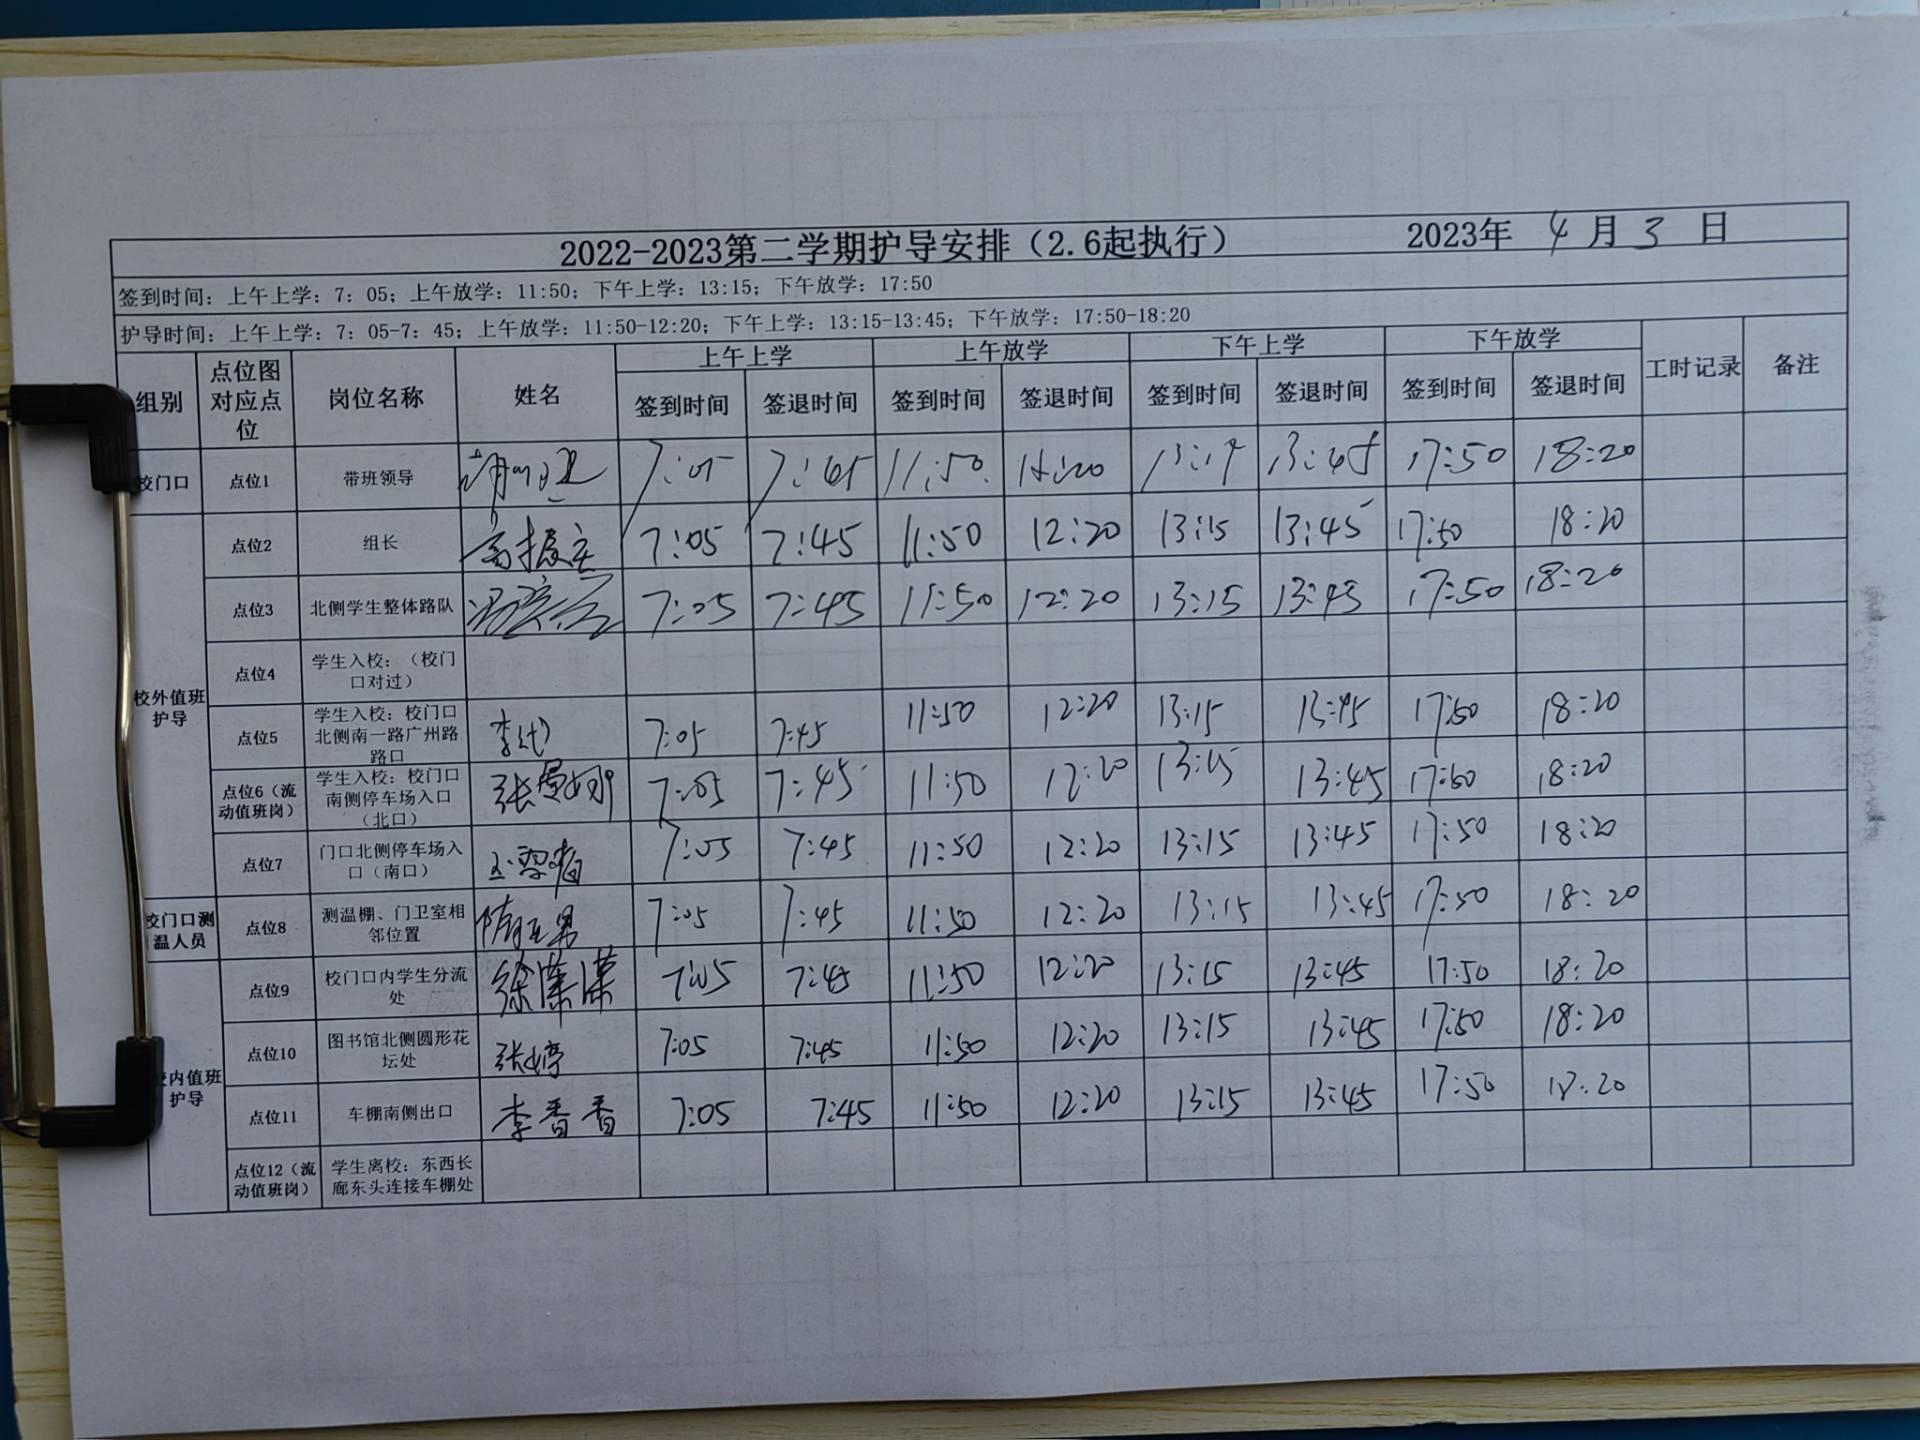 2022-2023第二学期护导安排（2.6起执行） 2023年 4 月 3 日
签到时间：上午上学：7：05；上午放学：11:50；下午上学：13:15；下午放学：17:50
护导时间：上午上学：7：05-7：45；上午放学：11:50-12:20；下午上学：13:15-13:45；下午放学：17:50-18:20
组别 点位图对应点位 岗位名称 姓名 上午上学 上午放学 下午上学 下午放学 工时记录 备注
签到时间 签退时间 签到时间 签退时间 签到时间 签退时间 签到时间 签退时间
校门口 点位1 带班领导 7:05 7:45 11:50 13:45 17:50 18:20
校外值班护导
点位2 组长 高振宝 7:05 7:45 11:50 12:20 13:15 13:45 17:50 18:20
点位3 北侧学生整体路队 7:05 7:45 11:50 12:20 13:15 13:45 17:50 18:20
点位4 学生入校：（校门口对过）
点位5 学生入校：校门口北侧南一路广州路路口 7:05 7:45 11:50 12:20 13:15 13:45 17:50 18:20
点位6（流动值班岗） 学生入校：校门口南侧停车场入口（北口） 7:05 7:45 11:50 12:20 13:15 13:45 17:50 18:20
点位7 门口北侧停车场入口（南口） 7:05 7:45 11:50 12:20 13:15 13:45 17:50 18:20
校门口测温人员 点位8 测温棚、门卫室相邻位置 7:05 7:45 11:50 12:20 13:15 13:45 17:50 18:20
内值班护导
点位9 校门口内学生分流处 徐潇潇 7:05 7:45 11:50 12:20 13:15 13:45 17:50 18:20
点位10 图书馆北侧圆形花坛处 张婷 7:05 7:45 11:50 12:20 13:15 13:45 17:50 18:20
点位11 车棚南侧出口 李香香 7:05 7:45 11:50 12:20 13:15 13:45 17:50 18:20
点位12（流动值班岗） 学生离校：东西长廊东头连接车棚处